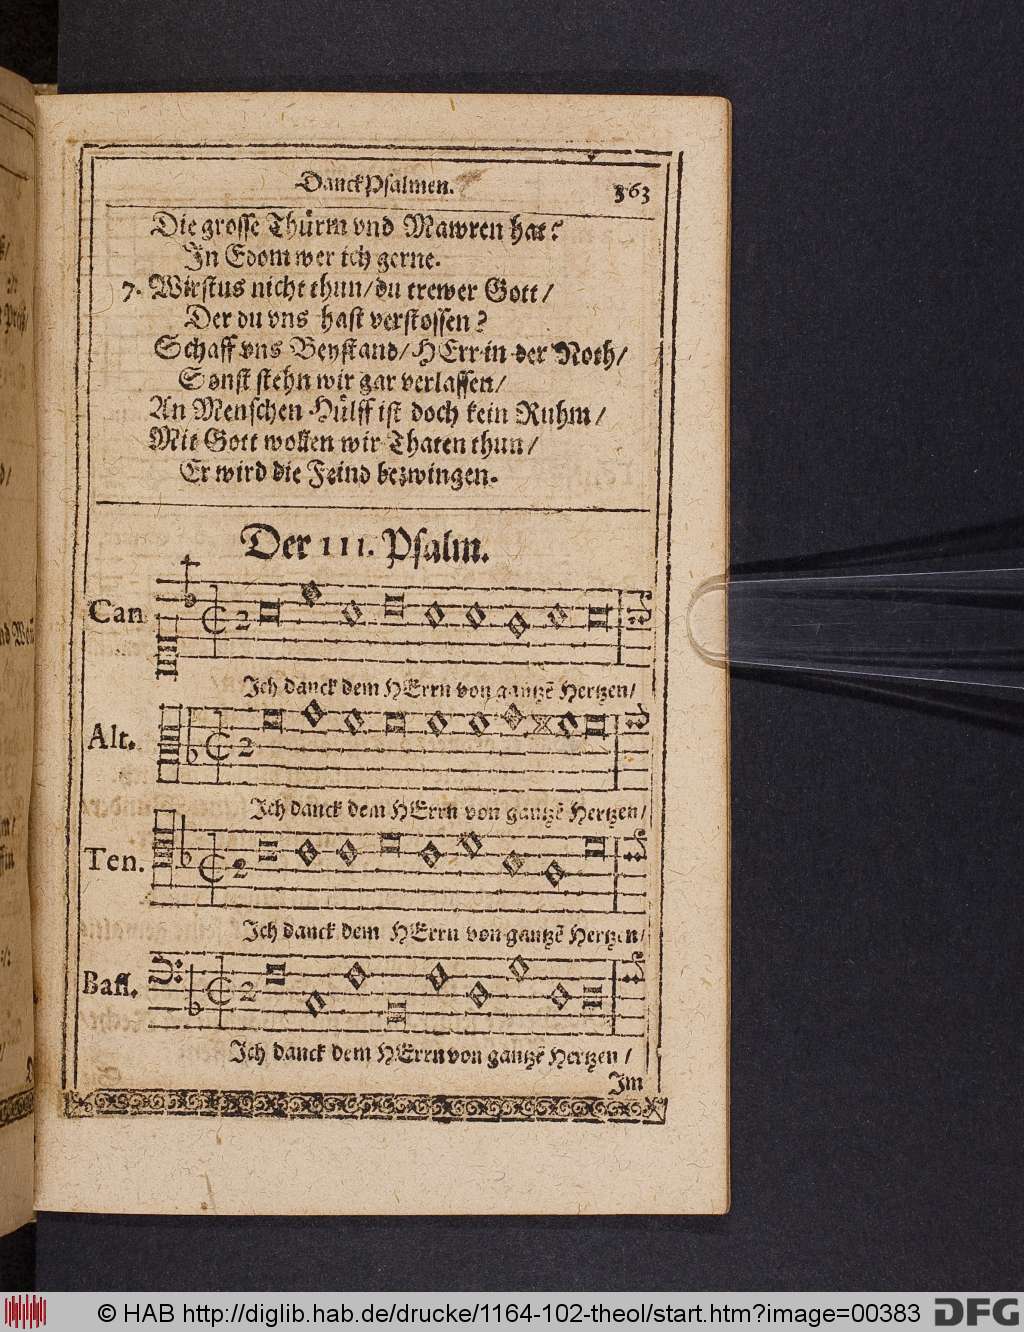 DanckPsalmen.
363
Die grosse Thürm vnd Mawren hat?
In Edom wer ich gerne.
7. Wirstus nicht thun/du trewer Gott/
Der du vns hast verstossen?
Schaff vns Beystand/HErr in der Noth/
Sonst stehn wir gar verlassen/
An Menschen Hülff ist doch kein Ruhm/
Mit Gott wollen wir Thaten thun/
Er wird die Feind bezwingen.
Der 111. Psalm.
Can
2
Ich danck dem HErrn von gantzẽ Hertzen/
Alt.
2
Ich danck dem HErrn von gantzẽ Hertzen/
Ten.
2
Ich danck dem HErrn von gantzẽ Hertzen/
Bass.
2
Ich danck dem HErrn von gantzẽ Hertzen/
Im
© HAB http://diglib.hab.de/drucke/1164-102-theol/start.htm?image=00383
DFG